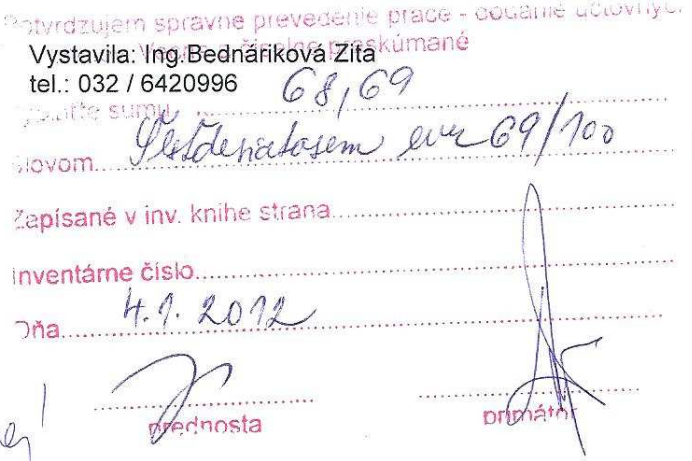 Potvrdzujem správne prevedenie práce - dodanie účtovných
Vecne a číselne preskúmané
Vystavila: Ing.Bednáriková Zita
tel.: 032 / 6420996
sumu 68,69
Slovom Šesťdesiatosem eur 69/100
Zapísané v inv. knihe strana
Inventárne číslo
Dňa 4.1.2012
prednosta primátor